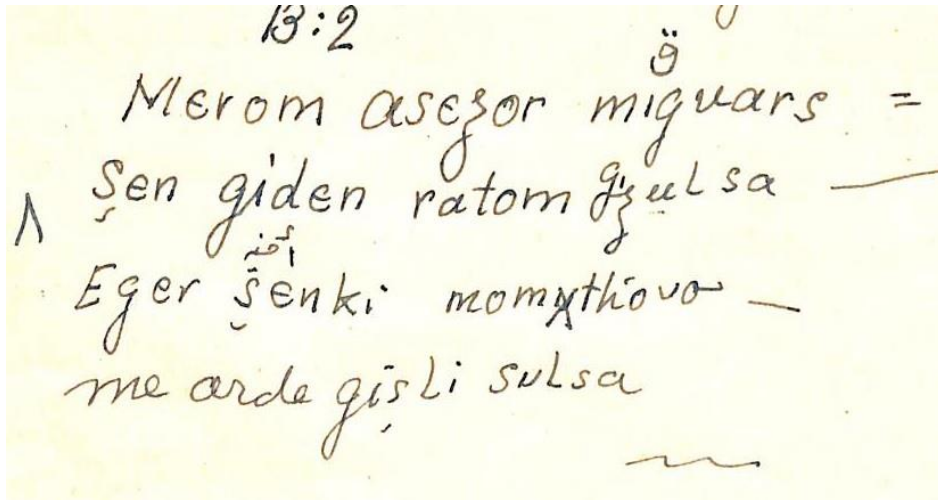 13:2
Merom asezor miguars =
Şen giden ratom gzulsa —
Eger şenki momxthovo —
me arde gişli sulsa